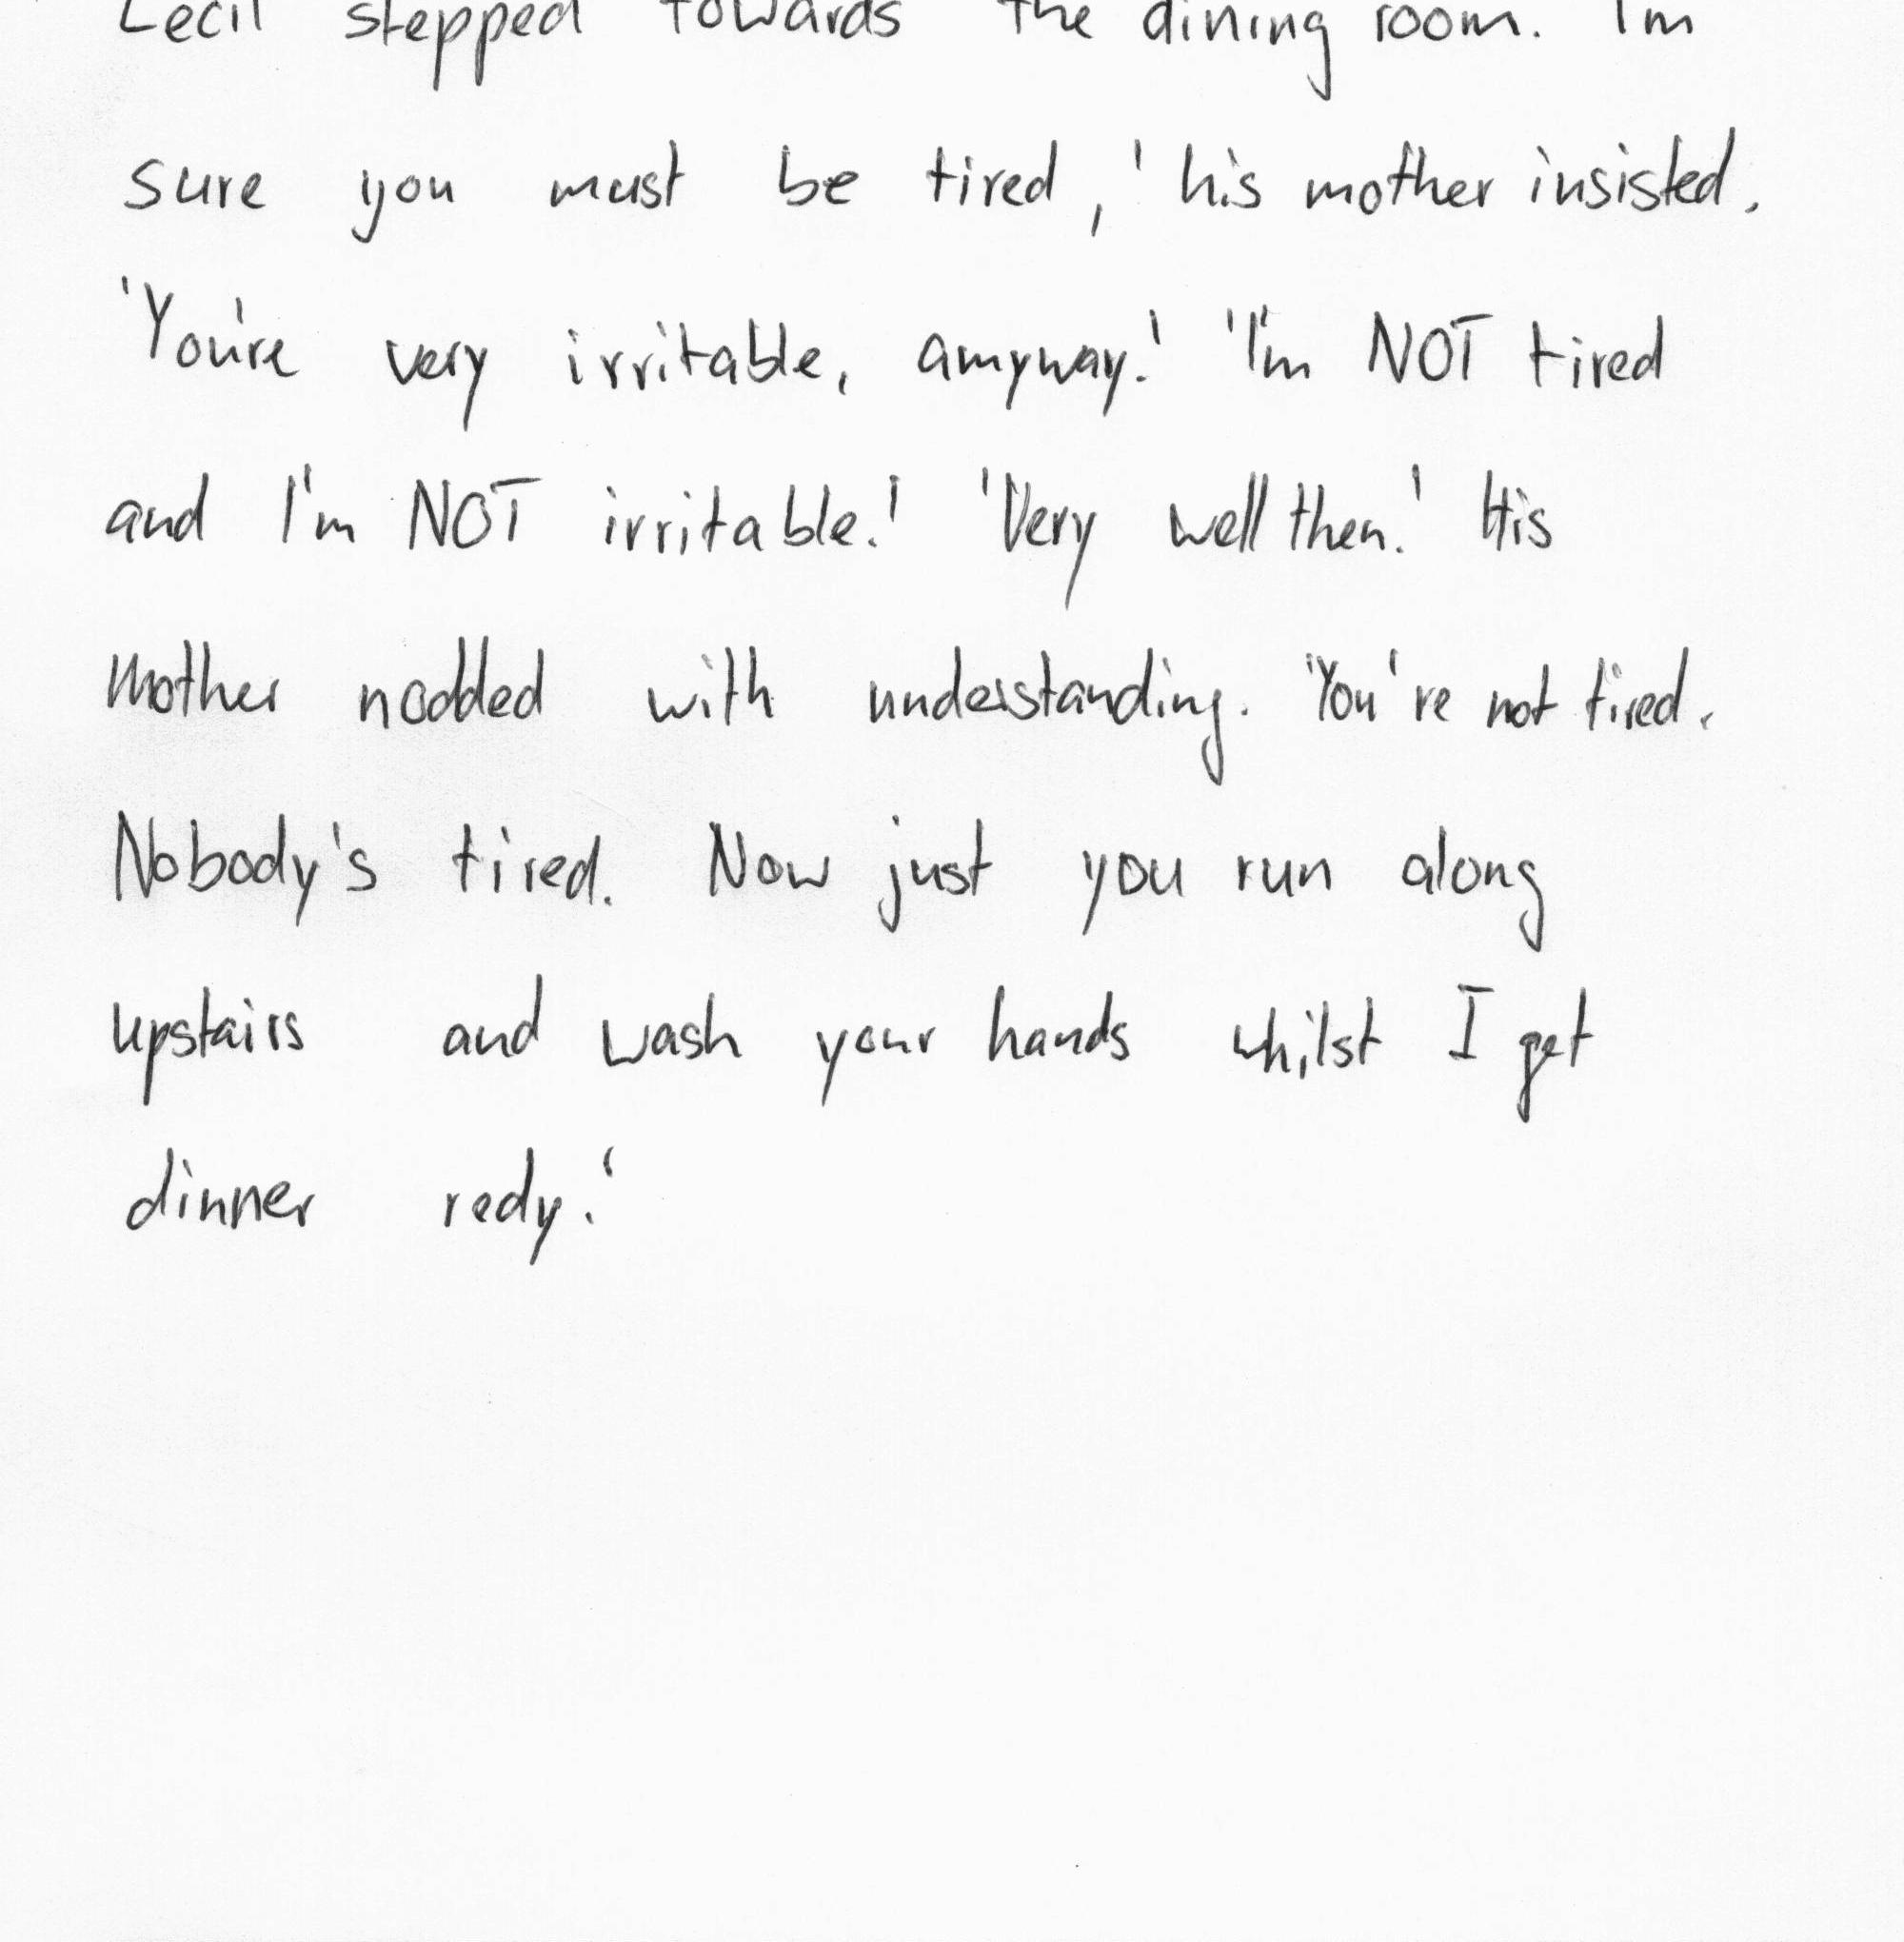 Cecil stepped towards the dining room. I'm
sure you must be tired,' his mother insisted.
'You're very irritable, amyway.' 'I'm NOT tired
and I'm NOT irritable.' 'Very well then.' His
mother nodded with understanding. 'You're not tired.
Nobody's tired. Now just you run along
upstairs and wash your hands whilst I get
dinner redy.'